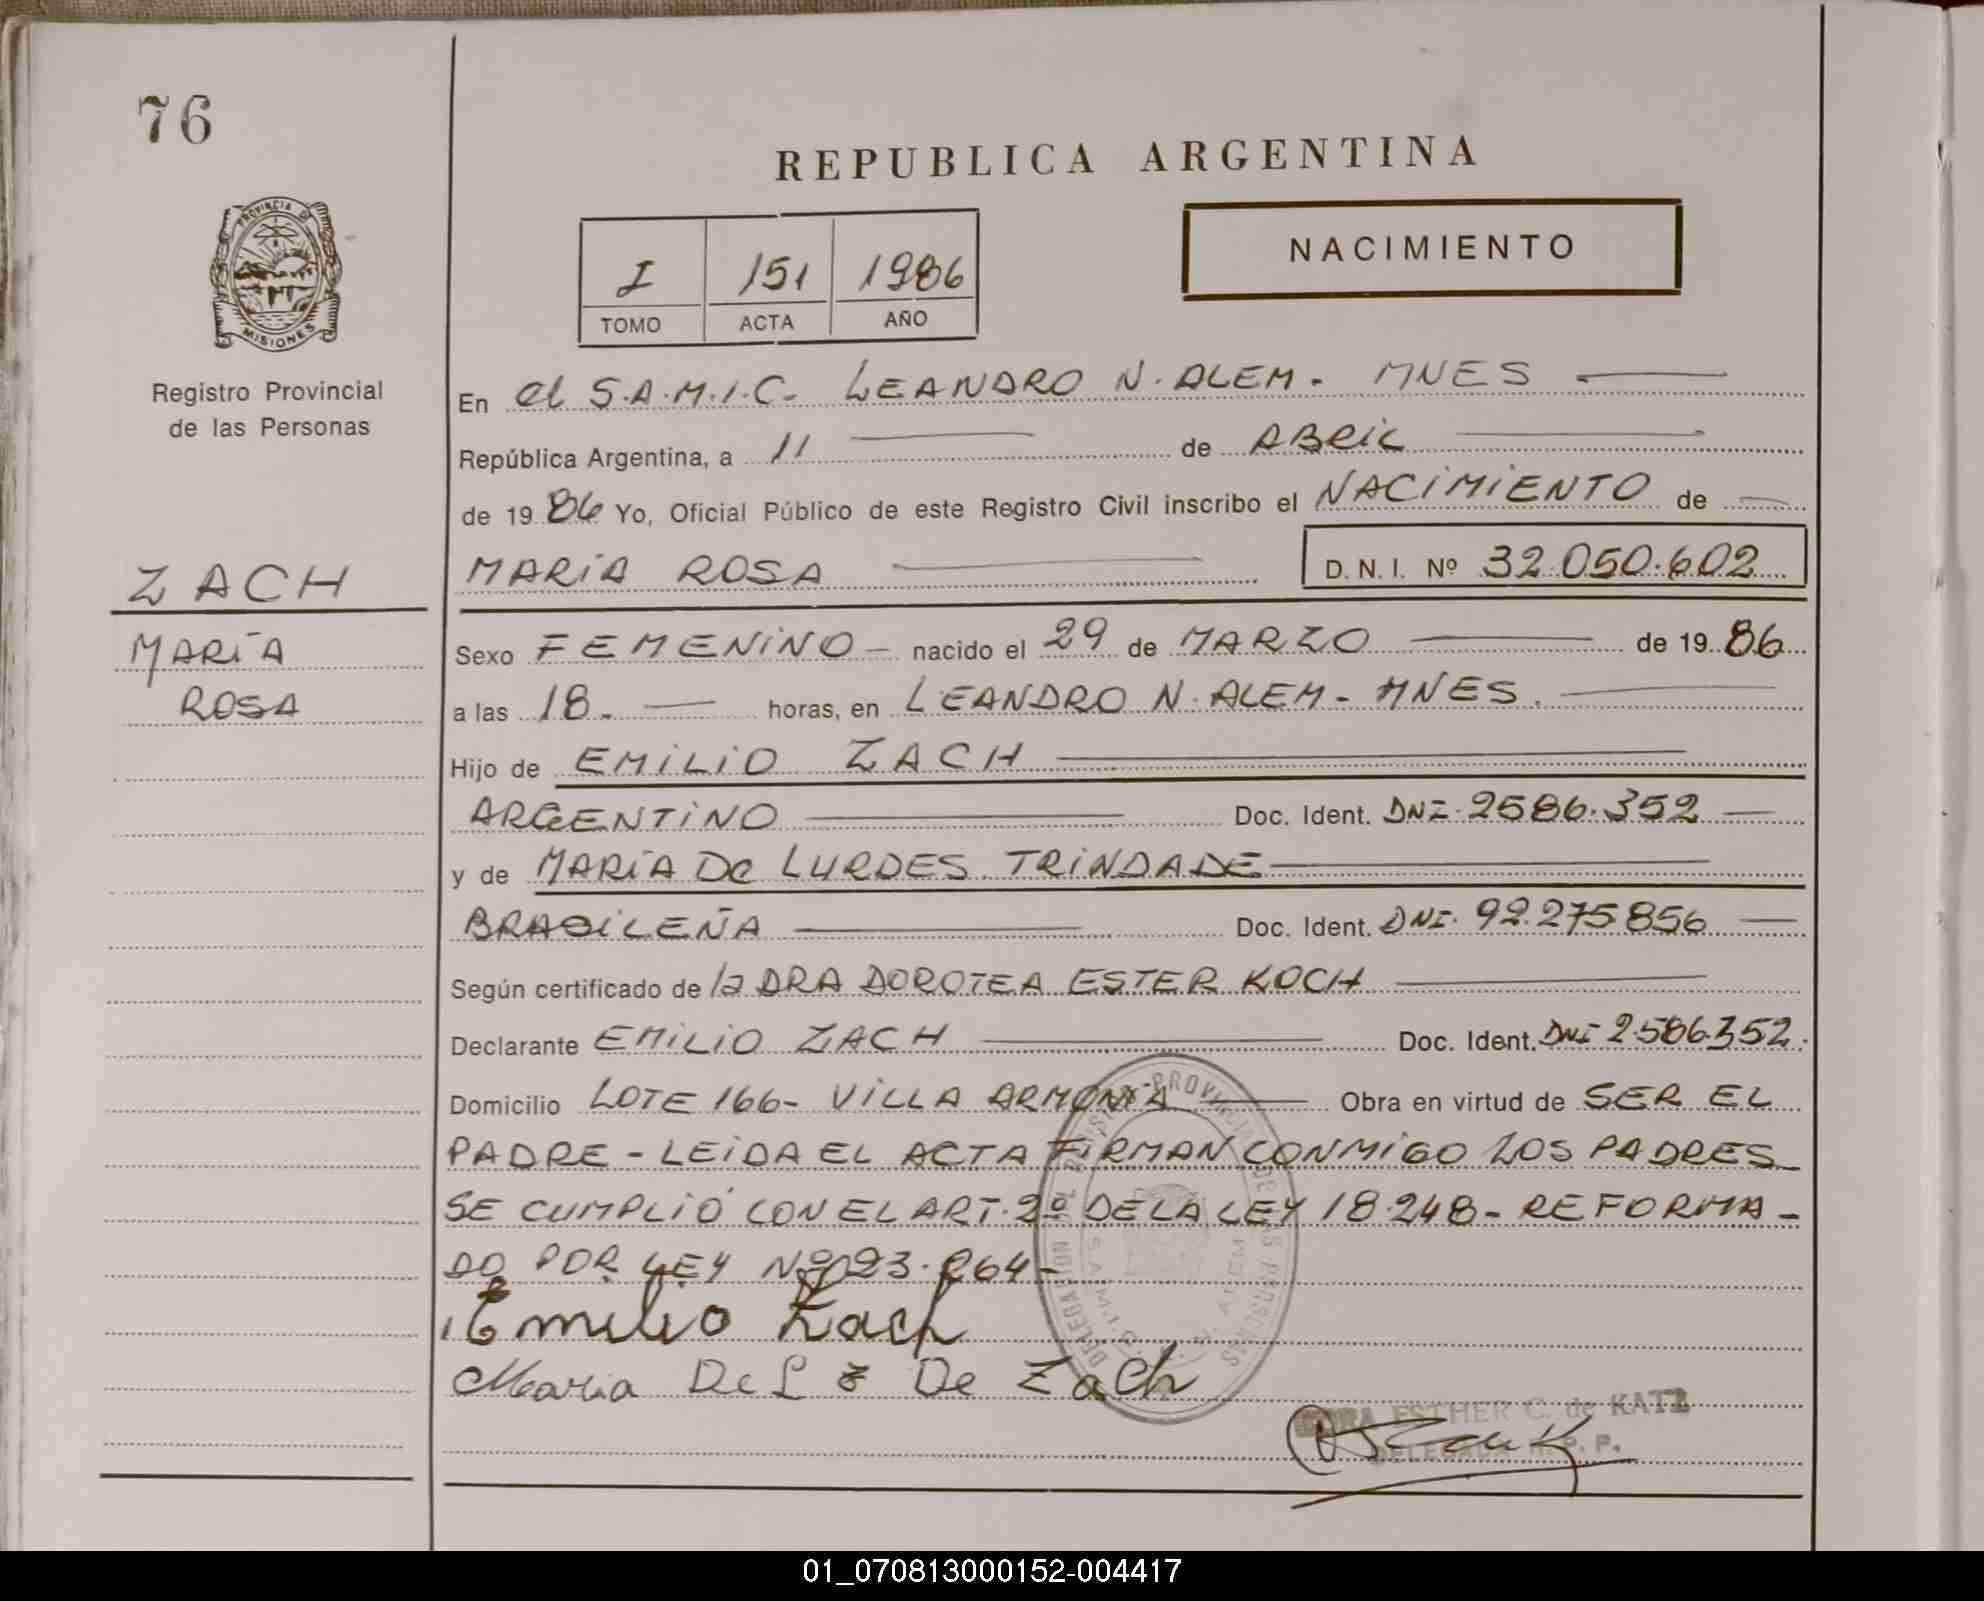 76
REPUBLICA ARGENTINA
NACIMIENTO
I 151 1986
TOMO ACTA AÑO
PROVINCIA DE
MISIONES
Registro Provincial
de las Personas
En el S.A.M.I.C. LEANDRO N. ALEM. MNES
República Argentina, a 11 de ABRIL
de 1986 Yo, Oficial Público de este Registro Civil inscribo el NACIMIENTO de
MARIA ROSA D. N. I. Nº 32.050.602
ZACH
MARÍA
ROSA
Sexo FEMENINO - nacido el 29 de MARZO de 1986
a las 18. horas, en LEANDRO N. ALEM - MNES.
Hijo de EMILIO ZACH
ARGENTINO Doc. Ident. DNI. 2586.352
y de MARÍA De LURDES TRINDADE
BRASILEÑA Doc. Ident. DNI. 92.275856
Según certificado de la DRA DOROTEA ESTER KOCH
Declarante EMILIO ZACH Doc. Ident. DNI 2.586352.
Domicilio LOTE 166- VILLA ARMONÍA Obra en virtud de SER EL
PADRE - LEIDA EL ACTA FIRMAN CONMIGO LOS PADRES
SE CUMPLIÓ CON EL ART. 2º DE LA LEY 18.248 - REFORMA -
DO POR LEY Nº 23.264 -
Emilio Zach
Maria De L De Zach
ESTHER C. de KATZ
DELEGADA R. P. P.
01_070813000152-004417